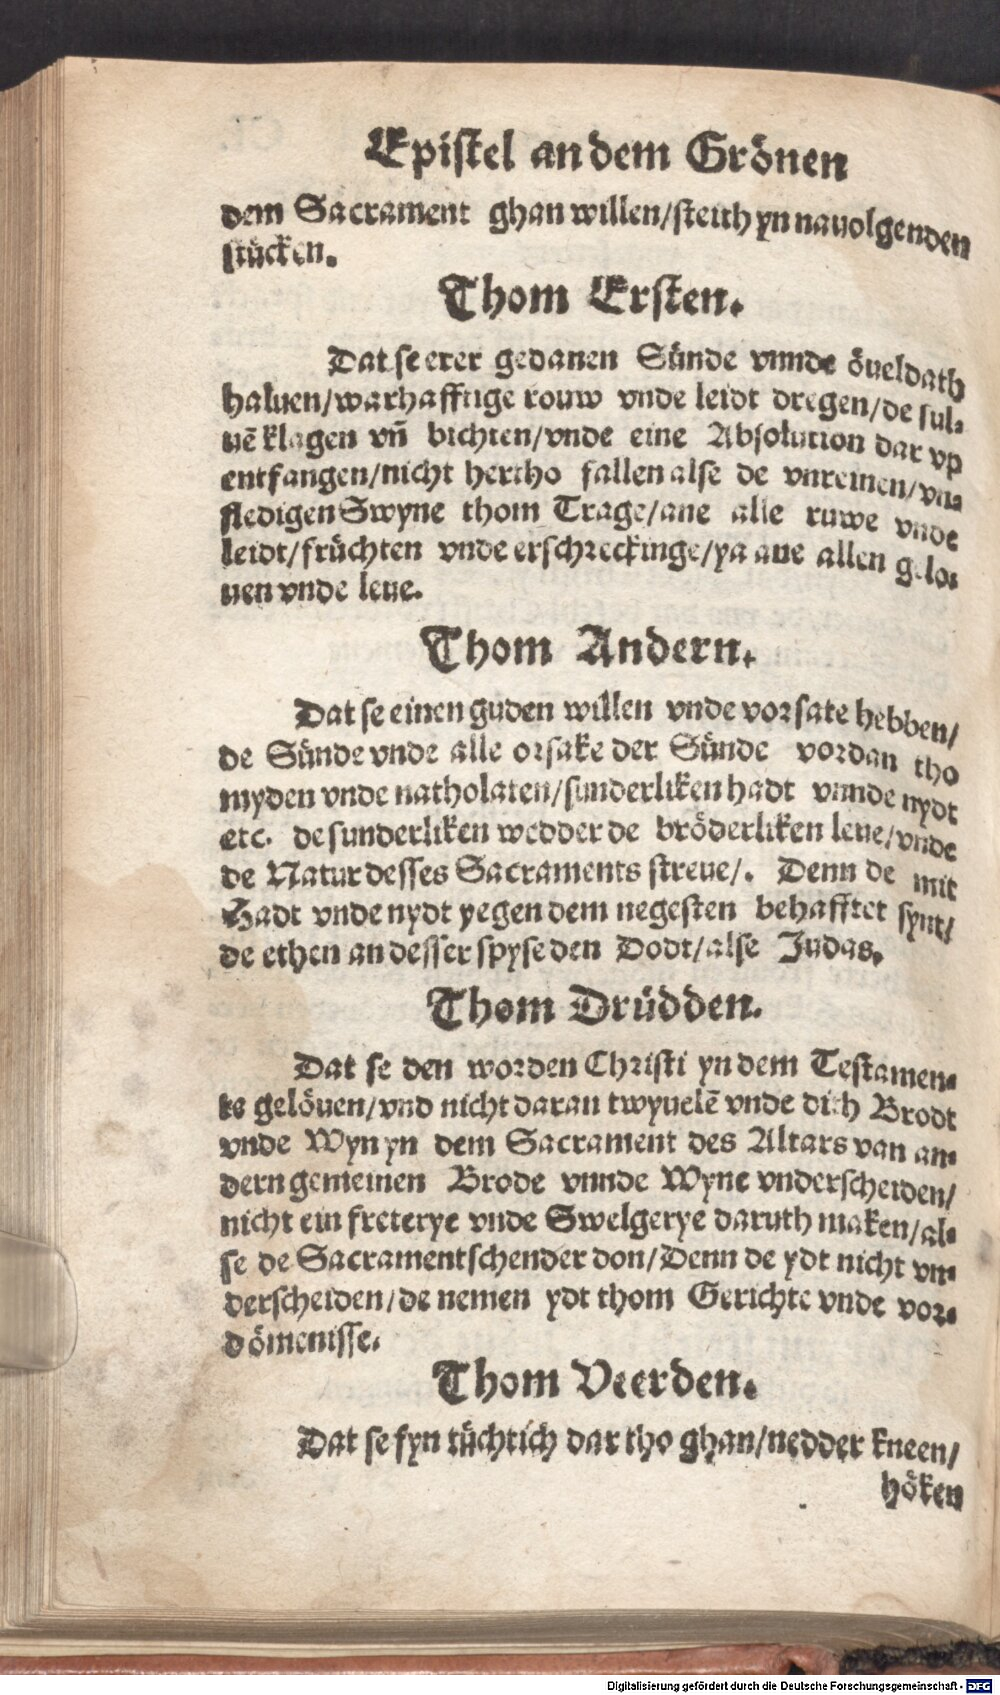 Epistel an dem Grönen
dem Sacrament ghan willen/steith yn nauolgenden
stücken.
Thom Ersten.
Dat se erer gedanen Sünde vnnde öueldath
haluen/warhafftige rouw vnde leidt dregen/de sul-
uē klagen vñ bichten/vnde eine Absolution dar vp
entfangen/nicht hertho fallen alse de vnreinen/vn-
fledigen Swyne thom Trage/ane alle ruwe vnde
leidt/früchten vnde erschreckinge/ya ane allen gelo-
uen vnde leue.
Thom Andern.
Dat se einen guden willen vnde vorsate hebben/
de Sünde vnde alle orsake der Sünde vordan tho
myden vnde natholaten/sunderliken hadt vnnde nydt
etc. de sunderliken wedder de bröderliken leue/vnde
de Natur desses Sacraments streue/. Denn de mit
Hadt vnde nydt yegen dem negesten behafftet synt/
de ethen an desser spyse den Dodt/alse Judas.
Thom Drüdden.
Dat se den worden Christi yn dem Testamen-
te gelöuen/vnd nicht daran twyuelē vnde dith Brodt
vnde Wyn yn dem Sacrament des Altars van an-
dern gemeinen Brode vnnde Wyne vnderscheiden/
nicht ein freterye vnde Swelgerye daruth maken/al-
se de Sacramentschender don/Denn de ydt nicht vn-
derscheiden/de nemen ydt thom Gerichte vnde vor-
dömenisse.
Thom Veerden.
Dat se fyn tüchtich dar tho ghan/nedder kneen/
höken
Digitalisierung gefördert durch die Deutsche Forschungsgemeinschaft - DFG